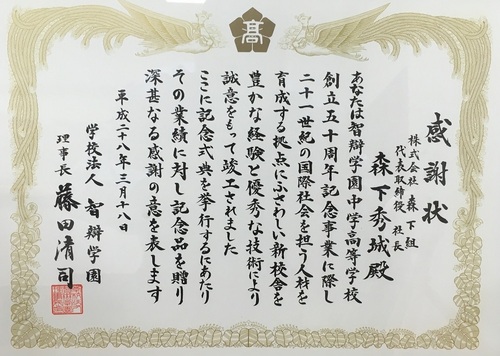 高
感謝状
株式会社 森下組
代表取締役 社長
森下秀城殿
あなたは智辯学園中学高等学校
創立五十周年記念事業に際し
二十一世紀の国際社会を担う人材を
育成する拠点にふさわしい新校舎を
豊かな経験と優秀な技術により
誠意をもって竣工されました
ここに記念式典を挙行するにあたり
その業績に対し記念品を贈り
深甚なる感謝の意を表します
平成二十八年三月十八日
学校法人 智辯学園
理事長 藤田清司